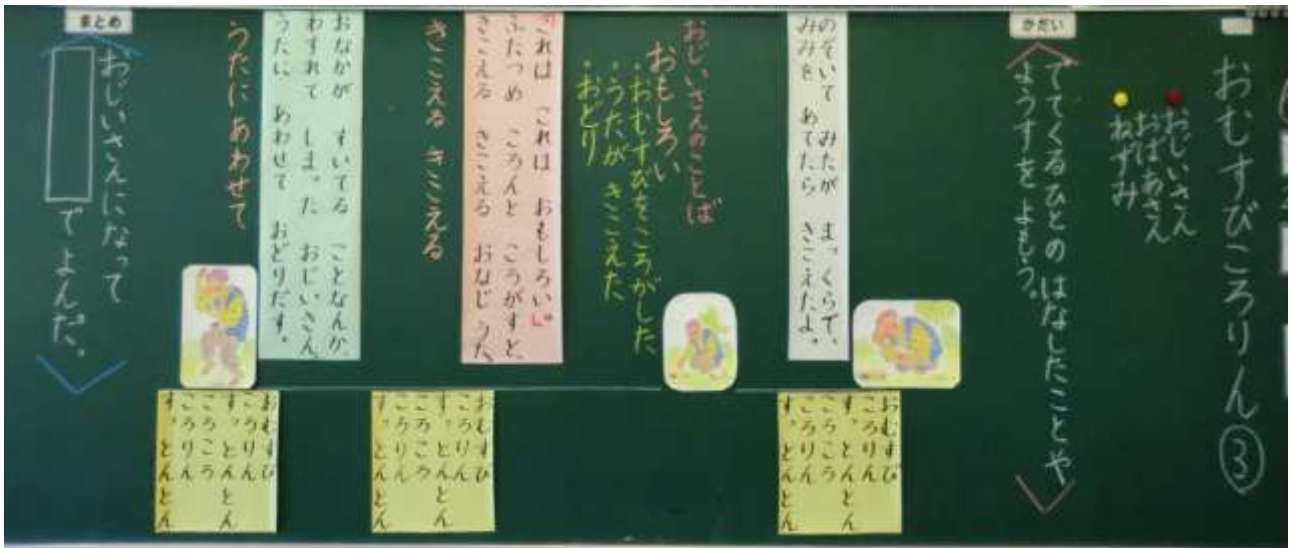 おむすびころりん③
おじいさん
おばあさん
ねずみ
かだい
でてくるひとの はなしたことや
ようすを よもう。
のぞいて みたが まっくらで、
みみを あてたら きこえたよ。
おむすび
ころりん
す、とんとん
ころころ
ころりん
す、とんとん
おじいさんのことば
おもしろい
・おむすびをころがした
・うたが きこえた
・おどり
これは これは おもしろい。」
ふたつめ ころんと ころがすと、
きこえる きこえる おなじ うた
きこえる きこえる
おむすび
ころりん
す、とんとん
ころころ
ころりん
す、とんとん
おなかが すいてる ことなんか、
わすれて しまった おじいさん
うたに あわせて おどりだす。
うたに あわせて
おむすび
ころりん
す、とんとん
ころころ
ころりん
す、とんとん
まとめ
おじいさんになって
でよんだ。